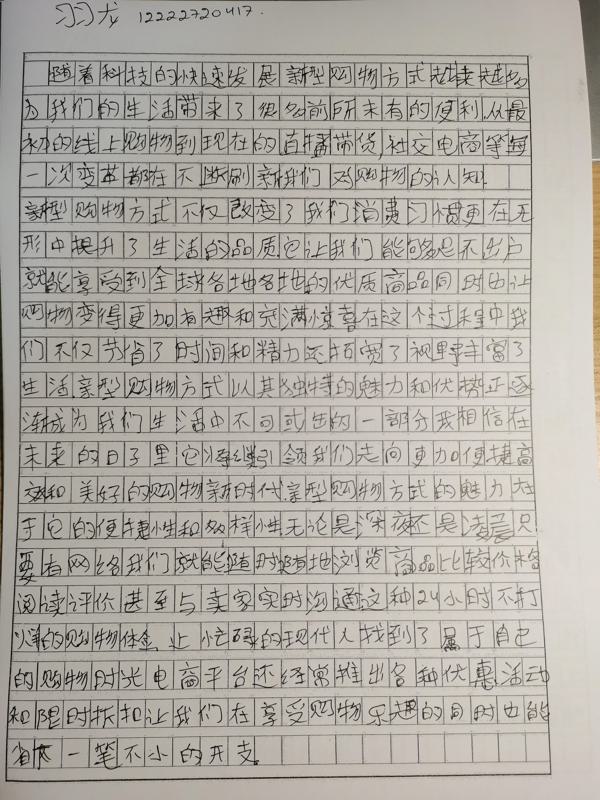 习习龙 12222720417.
随着科技的快速发展新型购物方式越来越多
为我们的生活带来了很多前所未有的便利.从最
初的线上购物到现在的直播带货,社交电商等每
一次变革都在不断刷新我们对购物的认知.
新型购物方式不仅改变了我们消费习惯更在无
形中提升了生活的品质.它让我们能够足不出户
就能享受到全球各地各地的优质商品同时也让
购物变得更加有趣和充满惊喜在这个过程中我
们不仅节省了时间和精力还拓宽了视野丰富了
生活新型购物方式以其独特的魅力和优势正逐
渐成为我们生活中不可或缺的一部分我相信在
未来的日子里它将继续引领我们走向更加便捷高
效和美好的购物新时代.新型购物方式的魅力在
于它的便捷性和多样性无论是深夜还是凌晨只
要有网络我们就能随时随地浏览商品比较价格
阅读评价甚至与卖家实时沟通这种24小时不打
烊的购物体验让忙碌的现代人找到了属于自己
的购物时光电商平台还经常推出各种优惠活动
和限时折扣让我们在享受购物乐趣的同时也能
省下一笔不小的开支.